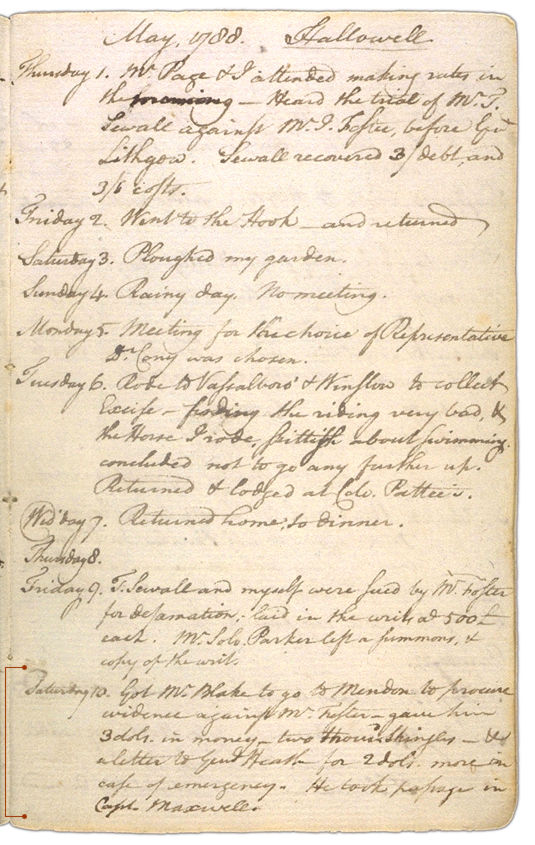 May, 1788. Hallowell
Thursday 1. Mr. Page & I attended making rates in
the forenoon — Heard the trial of Mr. T.
Sewall against Mr. I. Foster, before Genl
Lithgow. Sewall recovered 3/ debt, and
3/6 costs.
Friday 2. Went to the Hook — and returned
Saturday 3. Ploughed my garden.
Sunday 4. Rainy day. No meeting.
Monday 5. Meeting for the choice of Representative
Dr. Cony was chosen.
Tuesday 6. Rode to Vassalboro' & Winslow to collect
Excise — finding the riding very bad, &
the Horse I rode, skittish about swimming.
concluded not to go any further up.
Returned & lodged at Colo. Pattee's.
Wed'day 7. Returned home, to dinner.
Thursday 8.
Friday 9. T. Sewall and myself were sued by Mr. Foster
for defamation; laid in the writs at 500£
each. Mr. Solo. Parker left a summons, &
copy of the writ.
Saturday 10. Got Mr. Blake to go to Mendon to procure
evidence against Mr. Foster — gave him
3 dols. in money — two thous'd Shingles — &
a letter to Genl Heath for 2 dols. more on
case of emergency. He took passage in
Capt. Maxwell.